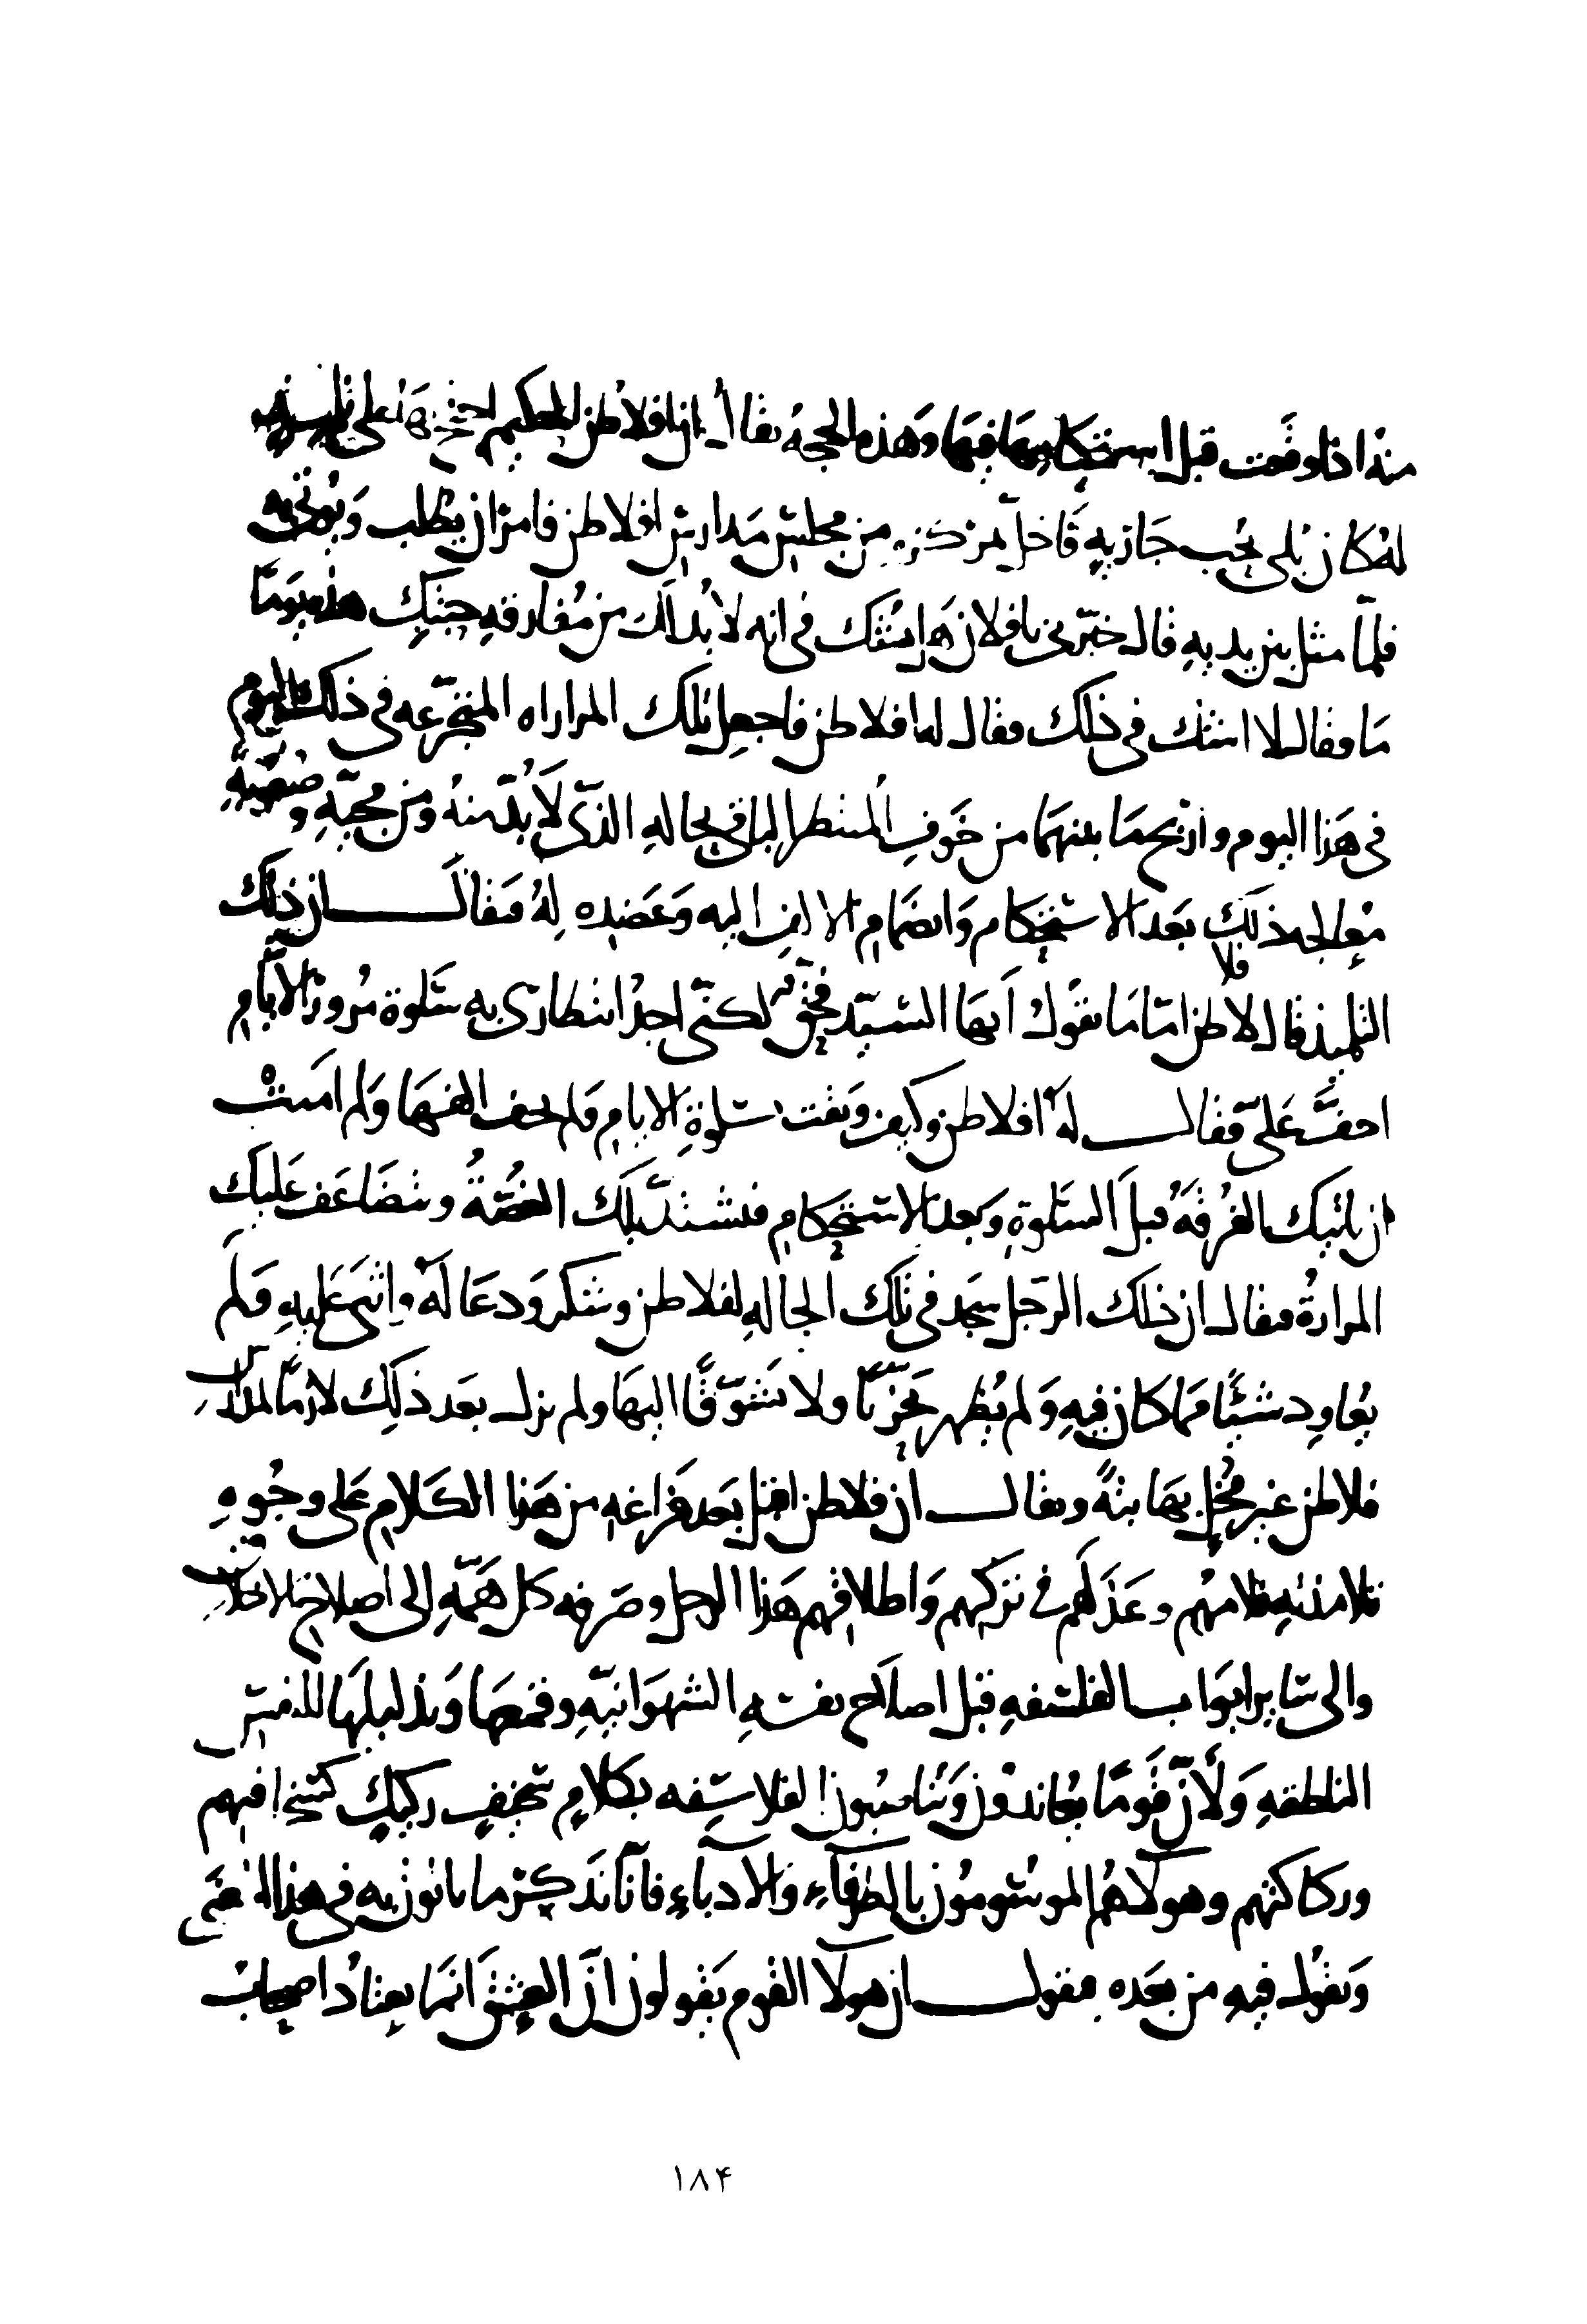 منه اذا وقعت قبل استحكامها فيها وهذه الحجة يقال ان افلاطن الحكيم احتج بها على تلميذ
له كان بلى بحب جاريه فاخل بمركزه من مجلس مدارس افلاطن فامر ان يطلب ويوتى به
فلما مثل بين يديه قال خبرنى يا فلان هل تشك فى انه لا بد لك من مفارقه حبيبك هذه يوما
ما فقال لا اشك فى ذلك فقال له افلاطن فاجعل تلك المراراه المتجرعه فى ذلك اليوم
فى هذا اليوم وازيح ما بينهما من خوف المنتظر الباقى بحاله الذى لا بد منه ومن مجيه وصعوبه
معالجه ذلك بعد الاستحكام وانضمام الالف اليه وعضده له فقال ان ذلك
التلميذ قال لافلاطن اما ما تقول ايها السيد فحق لكنى اجد انتظارى به سلوة مرور الايام
اخف على فقال له افلاطن وكيف وثقت بسلوة الايام ولم تخف الفها ولم امنت
ان ياتيك الفرقه قبل السلوة وبعد الاستحكام فتشتد بك الغصة وتتضاعف عليك
المرارة فقال ان ذلك الرجل سجد فى تلك الحاله لفلاطن وشكر ودعا له واثنى عليه ولم
يعاود شيئا مما كان فيه ولم يظهر تحزنا ولا تشوقا اليها ولم يزل بعد ذلك لازما لمدارس
فلاطن غير مخل بها بتة ويقال ان فلاطن اقبل بعد فراغه من هذا الكلام على وجوه
تلامذته فلامهم وعذلهم فى تركهم واطلاقهم هذا الرجل وصرفه كل همه الى اصلاح الاخلاق
والى ساير ابواب الفلسفه قبل اصلاح نفسه الشهوانيه وقمعها وتذليلها للنفس
الناطقه ولان قوما يعاندون ويناصبون الفلاسفه بكلام سخيف ركيك كسخافتهم
وركاكتهم وهولا هم الموسومون بالظرفآء والادباء فانا نذكر ما ياتون به فى هذا المعنى
ونقول فيه من بعده فنقول ان هولا القوم يقولون ان العشق انما يعتاد اصحاب
١٨۴